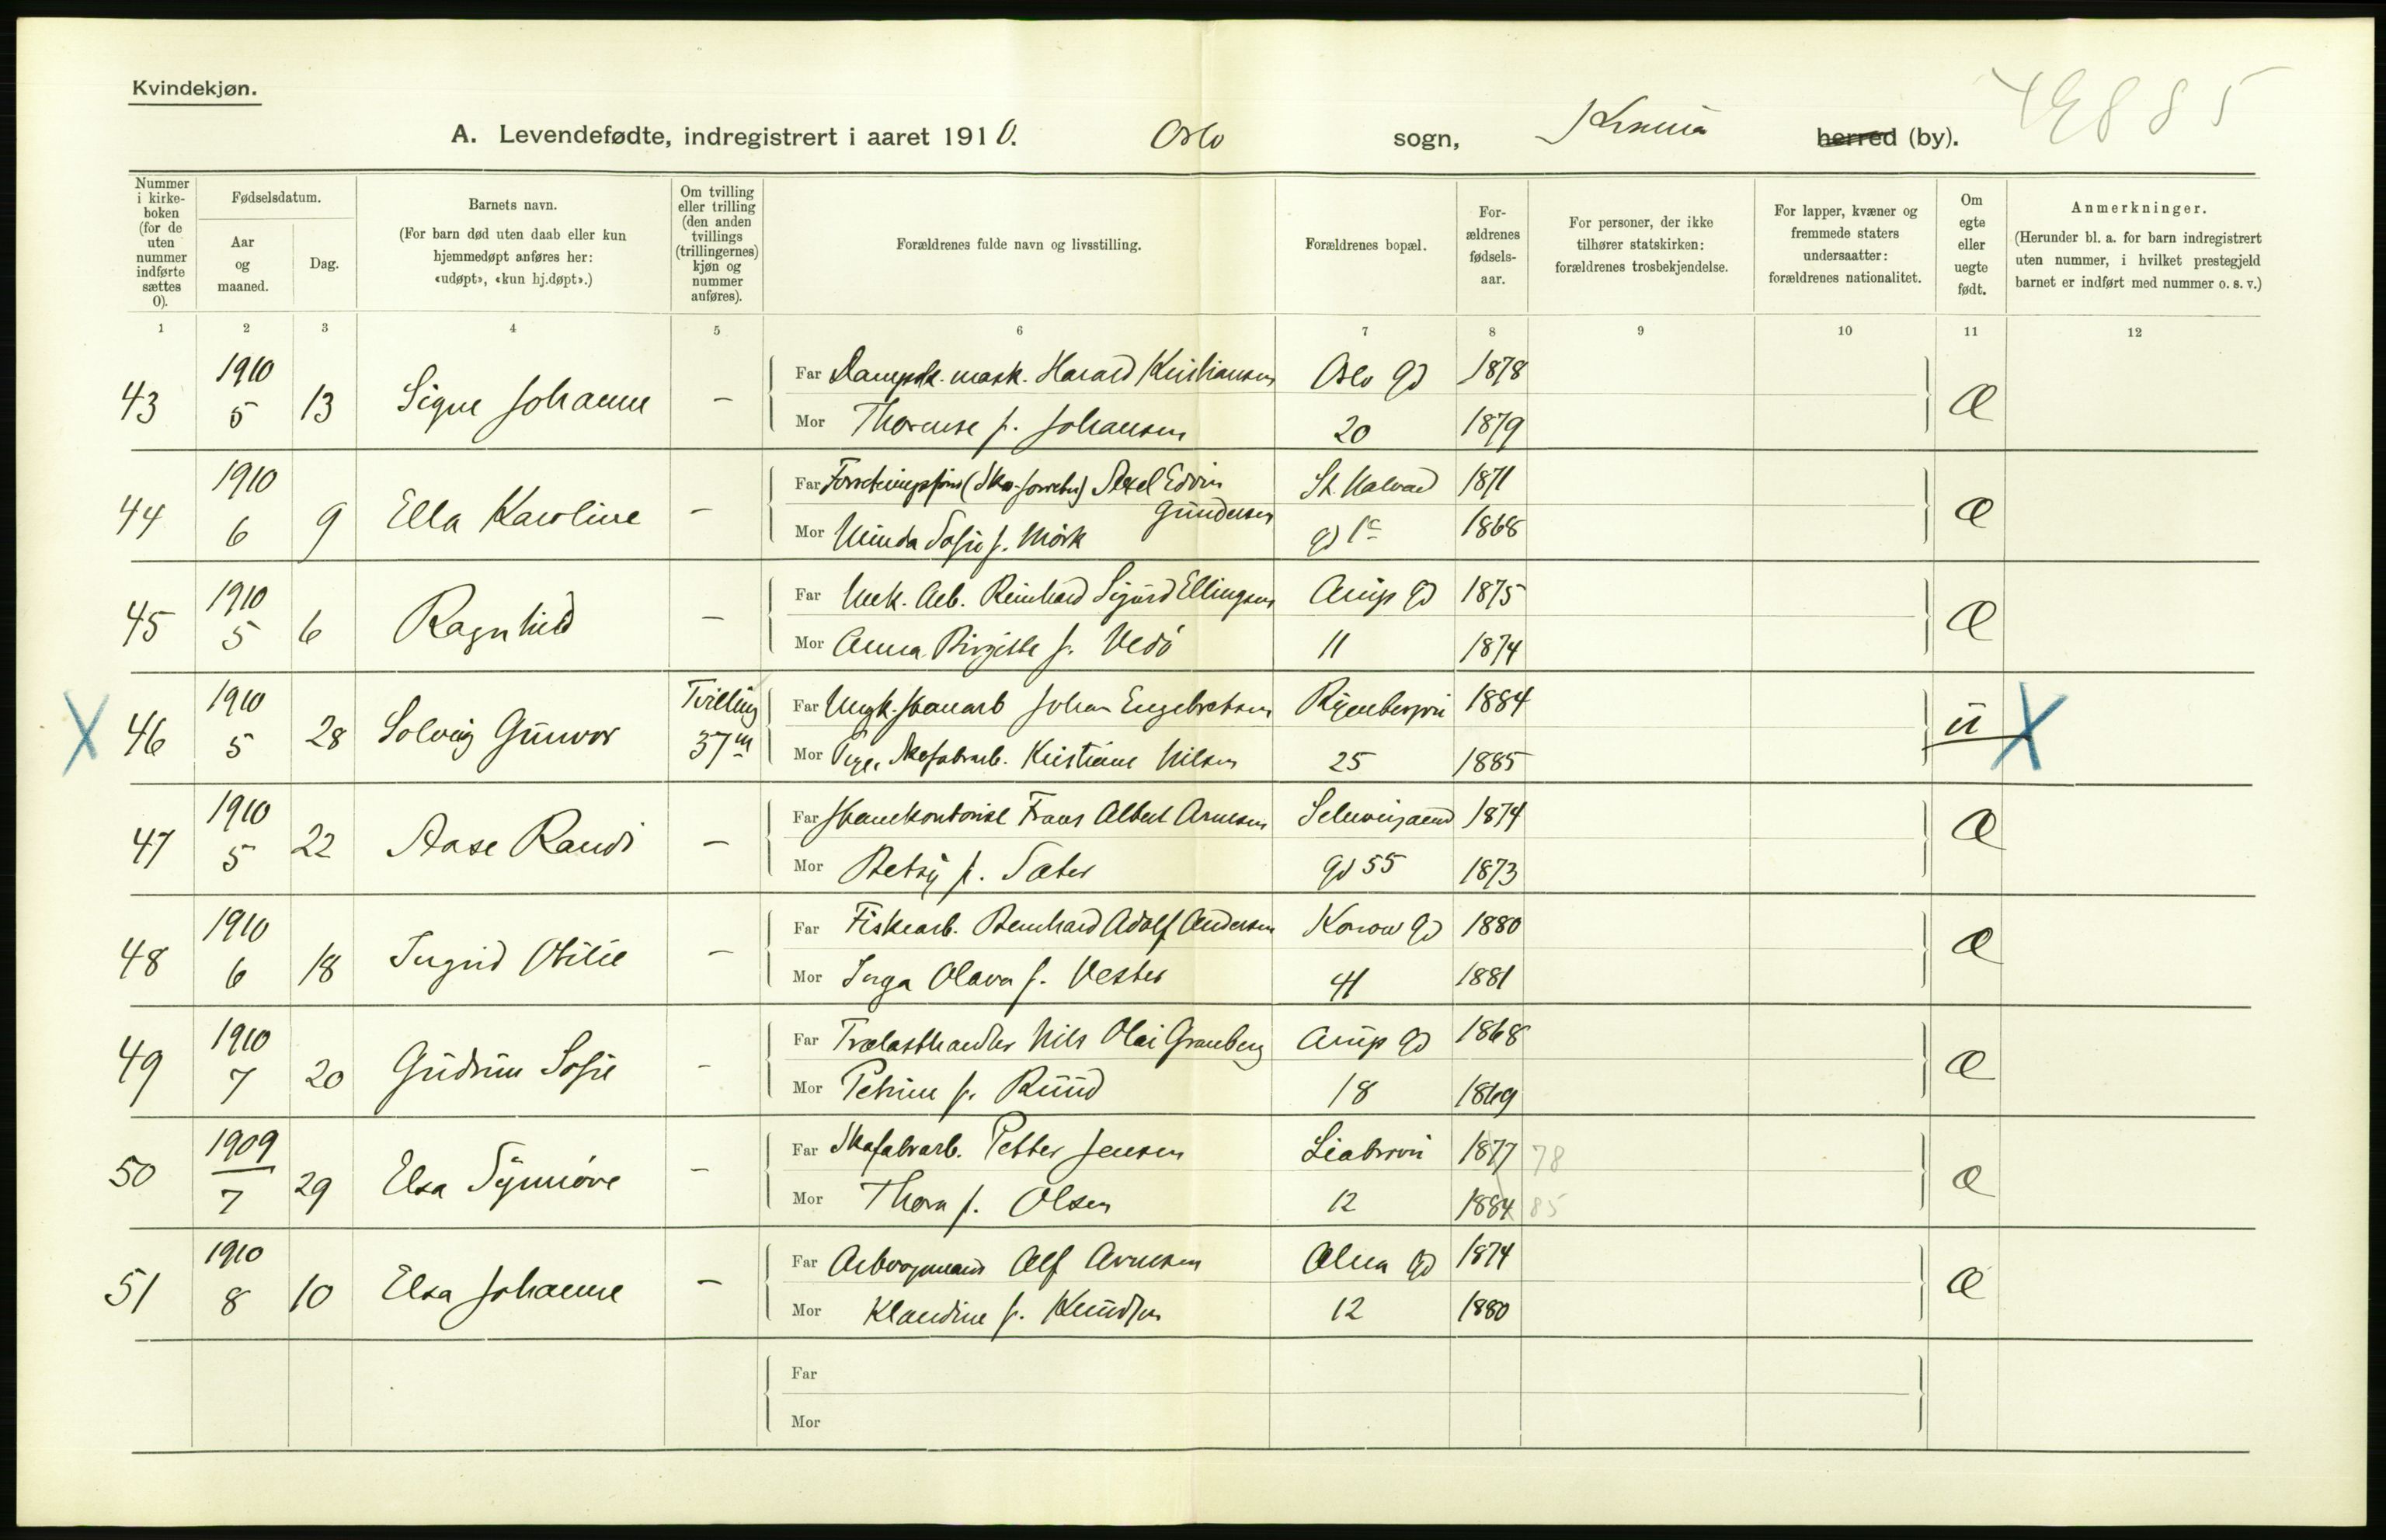 Kvindekjøn.
A. Levendefødte, indregistrert i aaret 1910. Oslo sogn, Krania herred (by).
Nummer i kirke-boken (for de uten nummer indførte sættes 0).
Fødselsdatum.
Aar og maaned.
Dag.
Barnets navn.
(For barn død uten daab eller kun hjemmedøpt anføres her: «udøpt», «kun hj.døpt».)
Om tvilling eller trilling (den anden tvillings (trillingernes) kjøn og nummer anføres).
Forældrenes fulde navn og livsstilling.
Forældrenes bopæl.
For-ældrenes fødsels-aar.
For personer, der ikke tilhører statskirken: forældrenes trosbekjendelse.
For lapper, kvæner og fremmede staters undersaatter: forældrenes nationalitet.
Om egte eller uegte født.
Anmerkninger.
(Herunder bl. a. for barn indregistrert uten nummer, i hvilket prestegjeld barnet er indført med nummer o. s. v.)
1 2 3 4 5 6 7 8 9 10 11 12
43 1910 5 13 Signe Johanne –
Far Dampsk. mask. Harald Kristiansen Oslo gd 1878 Æ
Mor Thorense f. Johansen 20 1879
44 1910 6 9 Ella Karoline –
Far Axel Edvin Gundersen St. Halvard 1871 Æ
Mor Minda Sofie f. Mörk gd 1c 1868
45 1910 5 6 Ragnhild –
Far Mek. Arb. Reinhard Sigurd Ellingsen Arup gd 1875 Æ
Mor Anna Birgitte f. Vedö 11 1874
X 46 1910 5 28 Solveig Gunvor Tvilling 37 m
Far Johan Engebretsen Ryenbergvn 1884 u X
Mor Pige, Skofabrarb. Kristiane Nilsen 25 1885
47 1910 5 22 Aase Randi –
Far Frans Albert Arnesen Schweigaard 1874 Æ
Mor Betsy f. Sæter gd 55 1873
48 1910 6 18 Ingrid Otilie –
Far Fiskearb. Bernhard Adolf Andersen Konow gd 1880 Æ
Mor Inga Olava f. Vester 41 1881
49 1910 7 20 Gudrun Sofie –
Far Trælasthandler Nils Olai Granberg Arup gd 1868 Æ
Mor Petrine f. Ruud 18 1869
50 1909 7 29 Elsa Synnöve –
Far Skofabrarb. Petter Jensen Liabrovn 1877 78 Æ
Mor Thora f. Olsen 12 1884 85
51 1910 8 10 Elsa Johanne –
Far Alf Arnesen Alna gd 1874 Æ
Mor Klaudine f. Knudsen 12 1880
Far
Mor